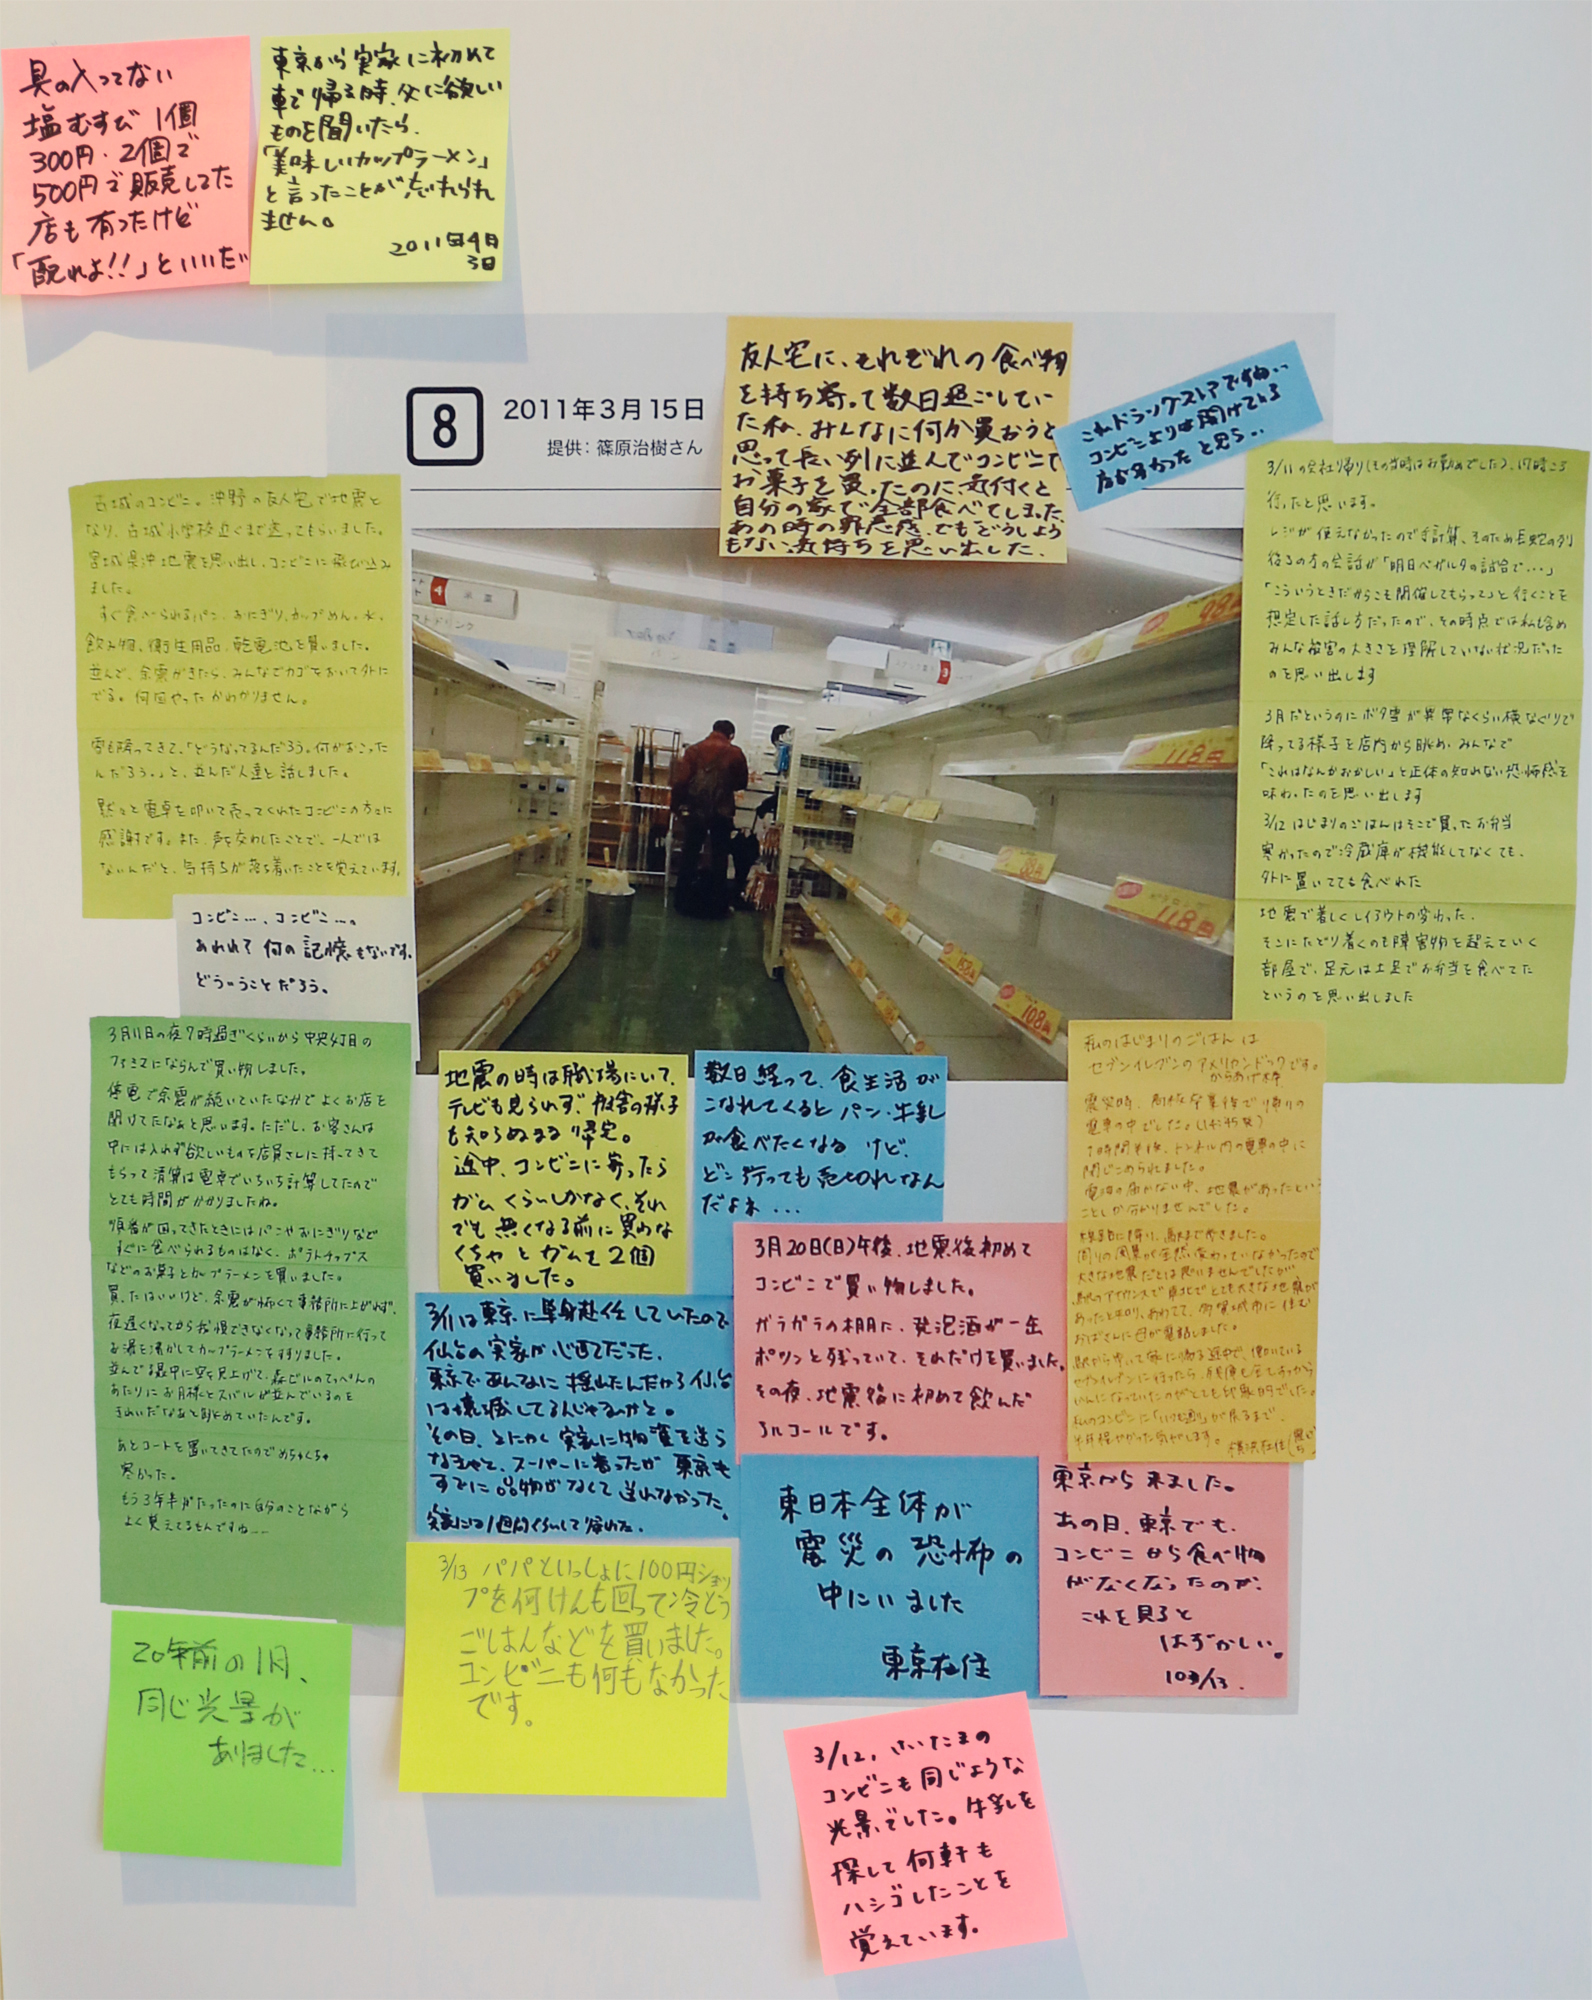 具の入ってない
塩むすび 1個
300円・2個で
500円で販売してた
店も有ったけど
「配れよ!!」といいたい
東京から実家に初めて
車で帰る時、父に欲しい
ものを聞いたら、
「美味しいカップラーメン」
と言ったことが忘れられ
ません。
2011年4月
3日
8
2011年3月15日
提供：篠原治樹さん
友人宅に、それぞれの食べ物
を持ち寄って数日過ごしてい
た私、みんなに何か買おうと
思って長い列に並んでコンビニで
お菓子を買ったのに、気付くと
自分の家で全部食べてしまった、
あの時の罪悪感、でもどうしよう
もない気持ちを思い出した、
これドラッグストアですね…
コンビニよりは開けている
店多かったと思う…
古城のコンビニ。沖野の友人宅で地震と
なり、古城小学校近くまで送ってもらいました。
宮城県沖地震を思い出し、コンビニに飛び込み
ました。
すぐ食べられるパン、おにぎり、カップめん、水、
飲み物、衛生用品、乾電池を買いました。
並んで、余震がきたら、みんなでカゴをおいて外に
でる。何回やったかわかりません。
雪も降ってきて、「どうなってるんだろう。何がおこった
んだろう。」と、並んだ人達と話しました。
黙々と電卓を叩いて売ってくれたコンビニの方々に
感謝です。また、声を交わしたことで、一人では
ないんだと、気持ちが落ち着いたことを覚えています。
3/11の会社帰り(その当時はお勤めでした)、17時ころ
行ったと思います。
レジが使えなかったので手計算、そのため長蛇の列
後ろの方の会話が「明日ベガルタの試合で…」
「こういうときだからこそ開催してもらって」と行くことを
想定した話し方だったので、その時点では私も含め
みんな被害の大きさを理解していない状況だった
のを思い出します
3月だというのにボタ雪が異常なくらい横なぐりで
降ってる様子を店内から眺め、みんなで
「これはなんかおかしい」と正体の知れない恐怖感を
味わったのを思い出します
3/12 はじまりのごはんはそこで買ったお弁当
寒かったので冷蔵庫が機能してなくても、
外に置いてても食べれた
地震で著しくレイアウトの変わった、
そこにたどり着くのも障害物を超えていく
部屋で、足元は土足でお弁当を食べてた
というのを思い出しました
98円
118円
118円
88円
158円
108円
4
3
パン
コンビニ…、コンビニ…。
あれれ？何の記憶もないです。
どういうことだろう。
3月11日の夜7時過ぎくらいから中央4丁目の
ファミマにならんで買い物しました。
停電で余震が続いていたなかでよくお店を
開けてたなあと思います。ただし、お客さんは
中には入れず欲しいものを店員さんに持ってきて
もらって清算は電卓でいちいち計算してたので
とても時間がかかりましたね。
順番が回ってきたときにはパンやおにぎりなど
すぐに食べられるものはなく、ポテトチップス
などのお菓子とカップラーメンを買いました。
買ったはいいけど、余震が怖くて事務所に上がれず、
夜遅くなってから我慢できなくなって事務所に行って
お湯を沸かしてカップラーメンをすすりました。
並んでる最中に空を見上げて、森ビルのてっぺんの
あたりにお月様とスバルが並んでいるのを
きれいだなあと眺めていたんです。
あとコートを置いてきてたのでめちゃくちゃ
寒かった。
もう3年半がたったのに自分のことながら
よく覚えてるもんですね……
地震の時は職場にいて、
テレビも見られず、被害の様子
も知らぬまま帰宅。
途中、コンビニに寄ったら
ガムくらいしかなく、それ
でも無くなる前に買わな
くちゃとガムを2個
買いました。
数日経って、食生活が
こなれてくるとパン・牛乳
が食べたくなるけど、
どこ行っても売切れなん
だよね…
3月20日(日)午後、地震後初めて
コンビニで買い物しました。
ガラガラの棚に、発泡酒が一缶
ポツンと残っていて、それだけを買いました。
その夜、地震後に初めて飲んだ
アルコールです。
私のはじまりのごはんは
セブンイレブンのアメリカンドックです。
からあげ棒
震災時、高校卒業後で帰りの
電車の中でした。(14:45発)
1時間半後、トンネル内の電車の中に
閉じこめられました。
電波の届かない中、地震があったという
ことしか分かりませんでした。
周りの風景が全然変わっていなかったので
大きな地震だとは思いませんでしたが
駅のアナウンスで東北でとても大きな地震が
あったと知り、あわてて、多賀城市に住む
おばさんに母が電話しました。
駅から歩いて家に帰る途中で、働いている
セブンイレブンに行ったら、
私のコンビニに「いつも通り」が戻るまで、
半月程かかった気がします。
横浜在住
3/11は東京に単身赴任していたので
仙台の実家が心配だった、
東京であんなに揺れたんだから仙台
は壊滅してるんじゃないかと。
その日、とにかく実家に物資を送ら
なきゃと、スーパーに寄ったが東京も
すでに品物がなくて送れなかった。
実家には1週間くらいして帰れた。
東日本全体が
震災の恐怖の
中にいました
東京在住
東京から来ました。
あの日、東京でも、
コンビニから食べ物
がなくなったのが、
これを見ると
はずかしい。
3/13 パパといっしょに100円ショッ
プを何けんも回って冷とう
ごはんなどを買いました。
コンビニも何もなかった
です。
20年前の1月、
同じ光景が
ありました…
3/12、さいたまの
コンビニも同じような
光景でした。牛乳を
探して何軒も
ハシゴしたことを
覚えています。